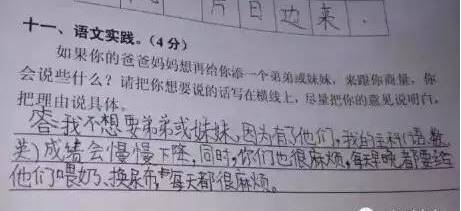 片日边来.
十一、语文实践。(4分)
如果你的爸爸妈妈想再给你添一个弟弟或妹妹，来跟你商量，你
会说些什么？请把你想要说的话写在横线上，尽量把你的意见说明白，
把理由说具体。
答：我不想要弟弟或妹妹，因为有了他们，我的主科(语数
英)成绩会慢慢下降，同时，你们也很麻烦，每天早晚都要给
他们喂奶、换尿布，每天都很麻烦。